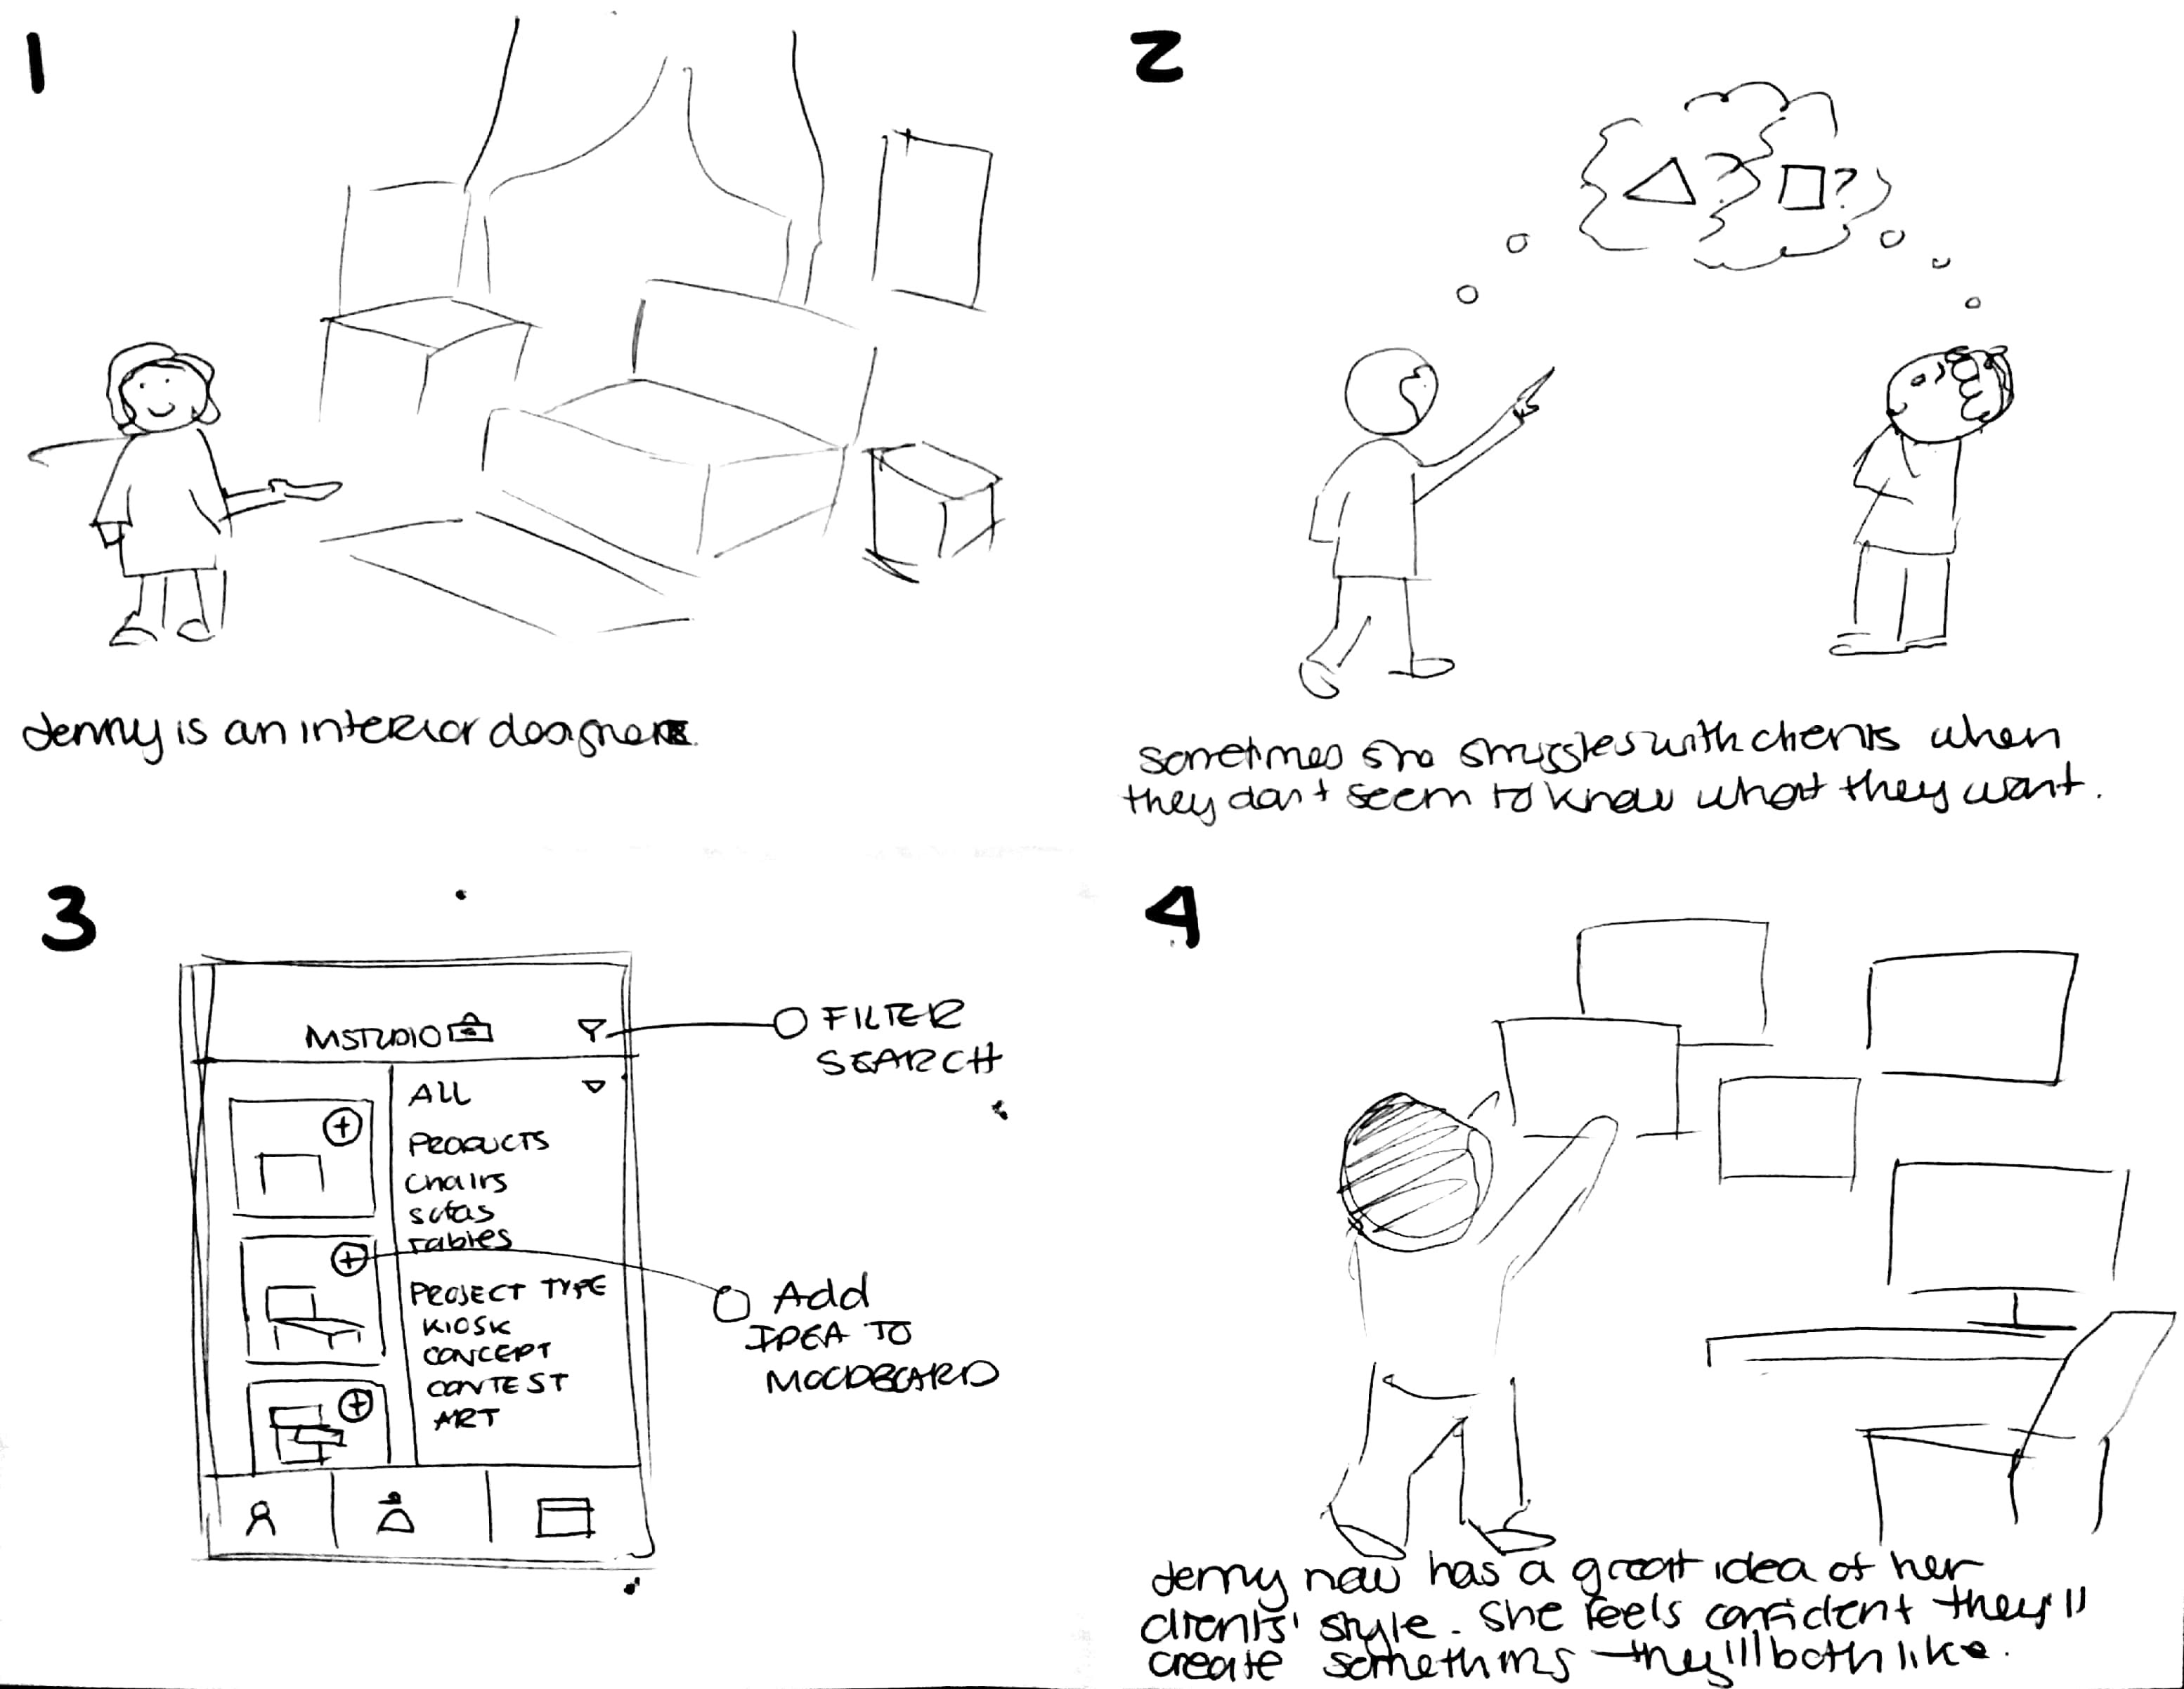 1
Jenny is an interior designer.
2
? ?
Sometimes she struggles with clients when
they don't seem to know what they want.
3
MSTUDIO
FILTER
SEARCH
ALL
PRODUCTS
Chairs
sofas
Tables
PROJECT TYPE
KIOSK
CONCEPT
CONTEST
ART
Add
IDEA TO
MOODBOARD
4
Jenny now has a great idea of her
clients' style. She feels confident they'll
create something they'll both like.